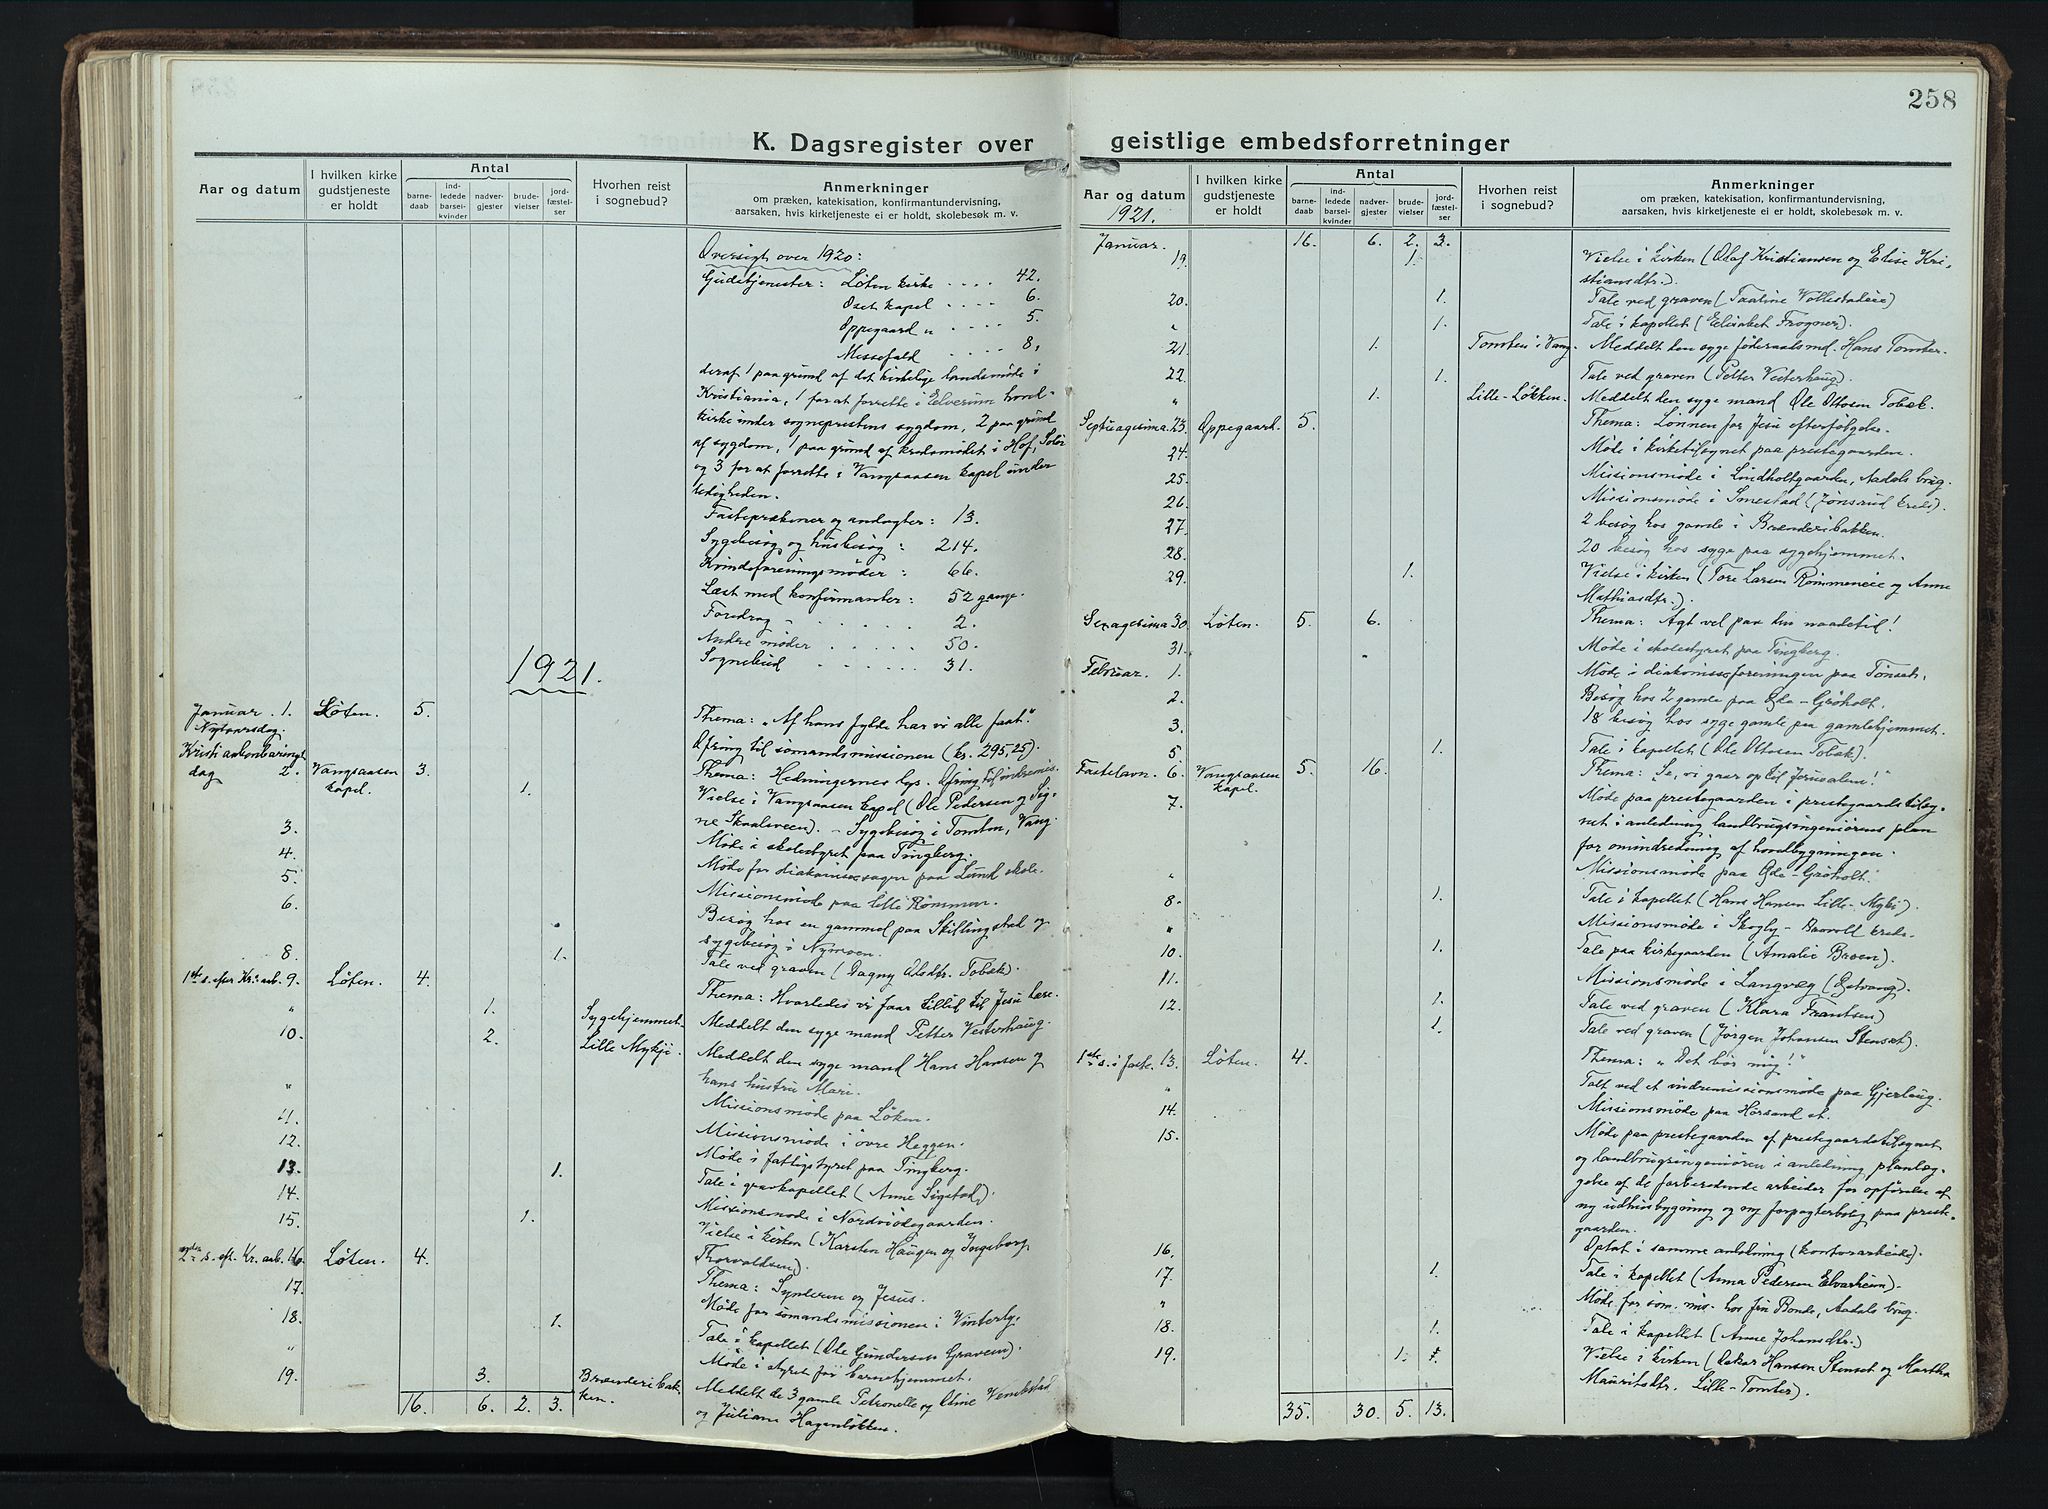 258
K. Dagsregister over geistlige embedsforretninger
Aar og datum
I hvilken kirke gudstjeneste er holdt
Antal
barnedaab
indledede barselkvinder
nadvergjester
brudevielser
jordfæstelser
Hvorhen reist i sognebud?
Anmerkninger
om præken, katekisation, konfirmantundervisning,
aarsaken, hvis kirketjeneste ei er holdt, skolebesøk m. v.
Oversigt over 1920:
Gudstjenester: Løten kirke .... 42.
Oset kapel .... 6.
Oppegaard „ .... 5.
Messefald .... 8,
deraf 1 paa grund af det kirkelige landsmøde i
Kristiania, 1 for at forrette i Elverum hoved-
kirke under sogneprestens sygdom, 2 paa grund
af sygdom, 1 paa grund af kredsmødet i Hof, Solør
og 3 for at forrette i Vangsaasen kapel under
ledigheden.
Fasteprækener og andagter: 13.
Sygebesøg og husbesøg: 214.
Kvindeforeningsmøder: 66.
Læst med konfirmanter: 52 gange.
Foredrag ..... 2.
Andre møder ..... 50.
Sognebud ..... 31.
1921.
Januar 1. Løten. 5. Thema: „Af hans fylde har vi alle faat".
Nytaarsdag. Ofring til sømandsmissionen (kr. 295,25).
Kristi aabenbarings
dag 2. Vangsaasen kapel. 3. Thema: Hedningernes lys. Ofring til indremis.
1. Vielse i Vangsaasen kapel (Ole Pedersen og Sig-
ne Skaalsveen). - Sygebesøg i Tomten, Vang.
3. Møde i skolestyret paa Tingberg.
4. Møde for diakonissesagen paa Lund skole.
5. Missionsmøde paa lille Rømmen.
6. Besøg hos en gammel paa Skillingstad og
sygebesøg i Nymoen.
8. 1. Tale ved graven (Dagny Olsdtr. Tobæk).
1ste s. efter Kr. aab. 9. Løten. 4. Thema: Hvorledes vi faar tillid til Jesu lære.
„ 1. Sygehjemmet. Meddelt den syge mand Petter Vesterhaug.
10. 2. Lille Mykje. Meddelt den syge mand Hans Hansen og
hans hustru Mari.
„ Missionsmøde paa Løken.
11. Missionsmøde i øvre Heggen.
12. Møde i fattigstyret paa Tingberg.
13. 1. Tale i gravkapellet (Anne Sigstad).
14. Missionsmøde i Nordviødegaarden.
15. 1. Vielse i kirken (Karsten Haugen og Ingeborg
Thorvaldsen).
2den s. eft. Kr. aab. 16. Løten. 4. Thema: Synderen og Jesus.
17. Møde for sømandsmissionen i Vinterly.
18. 1. Tale i kapellet (Ole Gundersen Graveren).
„ Møde i styret for barnehjemmet.
19. 3. Brænderibakken. Meddelt de 3 gamle Petronelle og Oline Venkstad
og Juliane Hagenløkken.
16. 6. 2. 3.
Aar og datum
1921.
I hvilken kirke gudstjeneste er holdt
Antal
barnedaab
indledede barselkvinder
nadvergjester
brudevielser
jordfæstelser
Hvorhen reist i sognebud?
Anmerkninger
om præken, katekisation, konfirmantundervisning,
aarsaken, hvis kirketjeneste ei er holdt, skolebesøk m. v.
Januar. 16. 6. 2. 3.
19. 1. Vielse i kirken (Olaf Kristiansen og Elise Kri-
stiansdtr.).
20. 1. Tale ved graven (Taaline Vollestadeie)
„ 1. Tale i kapellet (Elisabet Frogner).
21. 1. Tomten i Vang. Meddelt den syge føderaadsmd. Hans Tomter.
22. 1. Tale ved graven (Petter Vesterhaug).
„ 1. Lille-Løkken. Meddelt den syge mand Ole Ottosen Tobæk.
Septuagesima 23. Oppegaard. 5. Thema: Lønnen for Jesu efterfølgelse.
24. Møde i kirketilsynet paa prestegaarden.
25. Missionsmøde i Lundholtgaarden, Aadals brug.
26. Missionsmøde i Smestad (Jønsrud kreds).
27. 2 besøg hos gamle i Brænderibakken.
28. 20 besøg hos syge paa sygehjemmet.
29. 1. Vielse i kirken (Tore Larsen Rømmeneie og Anne
Mathiasdtr.).
Sexagesima 30. Løten. 5. 6. Thema: Agt vel paa din naadetid!
31. Møde i skolestyret paa Tingberg.
Februar. 1. Møde i diakonisseforeningen paa Tønset.
2. Besøg hos 2 gamle paa Øde-Grøholt.
3. 18 besøg hos syge gamle paa gamlehjemmet.
5 1. Tale i kapellet (Ole Ottosen Tobæk).
Fastelavn. 6. Vangsaasen kapel. 5. 16. Thema: Se, vi gaar op til Jerusalem!"
7. Møde paa prestegaarden i prestegaardstilsy-
net i anledning landbrugsingeniørens plan
for omindredning af hovedbygningen.
„ Missionsmøde paa Øde-Grøholt.
8. 1. Tale i kapellet (Hans Hansen Lille-Myki).
„ Missionsmøde i Skogly - Bærvold kreds.
10. 1. Tale paa kirkegaarden (Amalie Broen).
11. Missionsmøde i Langvæg (Østvang).
12. 1. Tale ved graven (Klara Frantsen)
1. Tale ved graven (Jørgen Johansen Stenset).
1ste s. i faste. 13. Løten. 4. Thema: „Det bør mig!"
„ Talt ved et indremissionsmøde paa Gjerlaug.
14. Missionsmøde paa Horsand st.
15. Møde paa prestegaarden af prestegaardstilsynet
og landbrugsingeniøren i anledning planlæg-
gelse af de forberedende arbeider for opførelse af
ny udhusbygning og ny forpagterbolig paa preste-
gaarden.
16. Optat i samme anledning (kontorarbeide).
17. 1. Tale i kapellet (Anna Pedersen Elvarheim).
„ Møde for søm. mis. hos fru Bonde, Aadals brug.
18. 1. Tale i kapellet (Anne Johansdtr.)
19. 1. Vielse i kirken (Oskar Hansen Stenset og Martha
Mauritsdtr. Lille-Tomter).
35. 30. 5. 13.